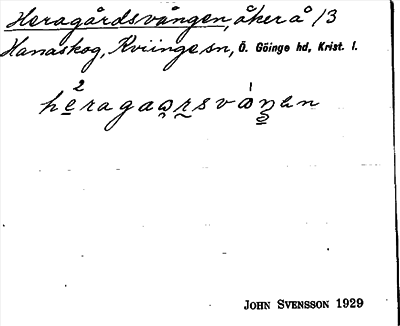 Heragårdsvången, åker å 13
Hanaskog, Kviinge sn, Ö. Göinge hd, Krist. l.
he²ragaωrsvωńen
JOHN SVENSSON 1929